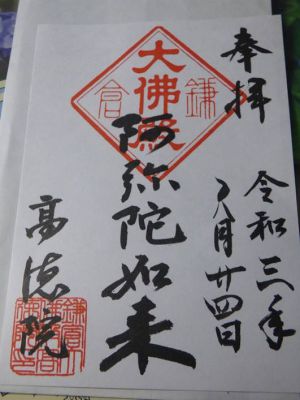 奉拝
令和三年
八月廿四日
大佛殿
鎌倉
阿弥陀如来
高徳院